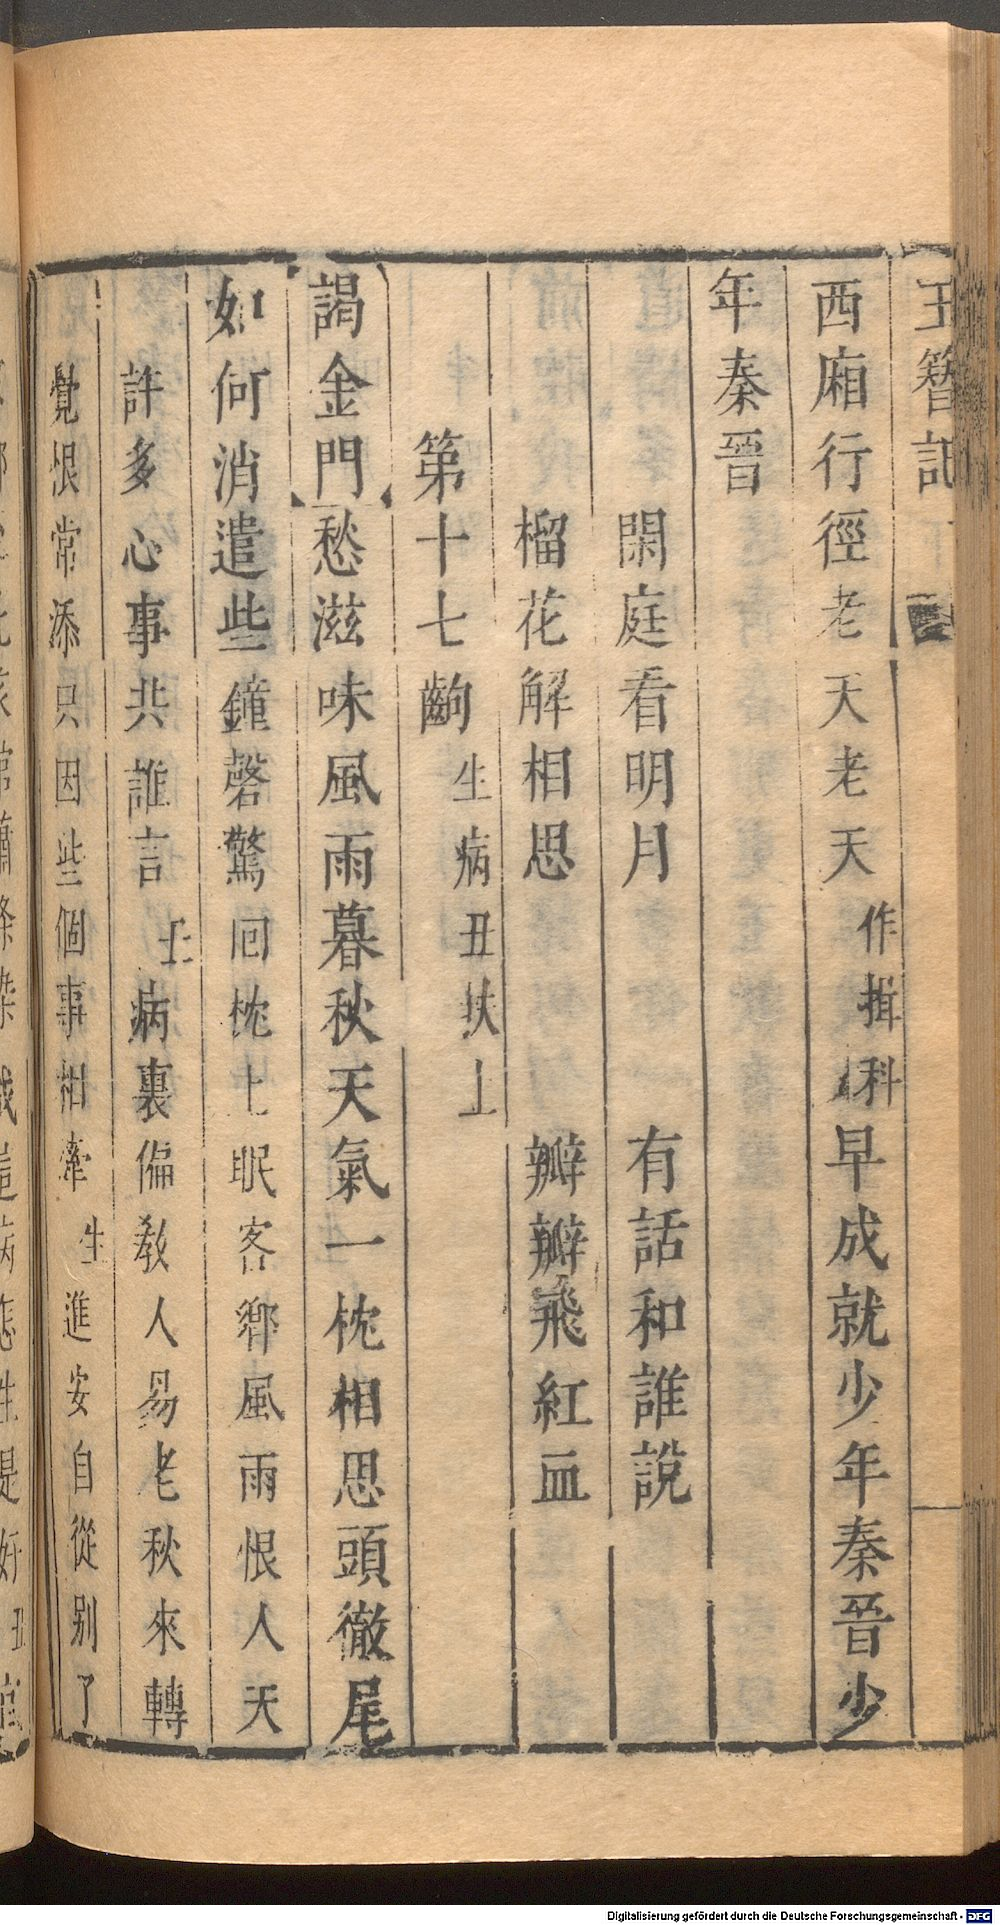 玉簪記
西廂行徑老天天老天作揖科早成就少年秦晉少
年秦晉
閑庭看明月 有話和誰說
榴花解相思 瓣瓣飛紅血
第十七齣生病丑扶上
謁金門愁滋味風雨暮秋天氣一枕相思頭徹尾
如何消遣些鐘磬驚回枕上眠客鄉風雨恨人天
許多心事共誰言丑病裏偏教人易老秋來轉
覺恨常添只因些個事相牽生進安自從別了
Digitalisierung gefördert durch die Deutsche Forschungsgemeinschaft - DFG